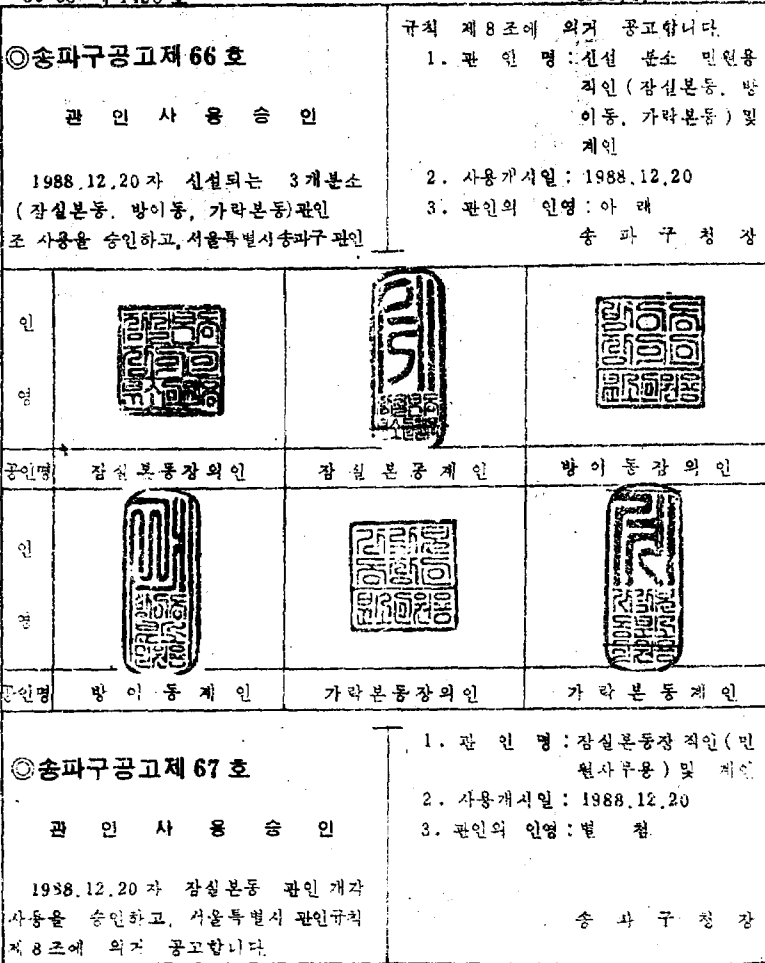 ◎송파구공고제 66 호
관 인 사 용 승 인
1988.12.20 자 신설되는 3개분소
(잠실본동, 방이동, 가락본동)관인
조 사용을 승인하고, 서울특별시송파구 관인
규칙 제 8 조에 의거 공고합니다.
1. 관 인 명 : 신설 분소 민원용
직인 ( 잠실본동, 방
이동, 가락본동 ) 및
계인
2. 사용개시일 : 1988.12.20
3. 관인의 인영 : 아 래
송 파 구 청 장
인
영
공인명 잠실본동장의인 잠실본동계인 방이동장의인
인
영
공인명 방이동계인 가락본동장의인 가락본동계인
◎송파구공고제 67 호
관 인 사 용 승 인
1988.12.20 자 잠실본동 관인 개각
사용을 승인하고, 서울특별시 관인규칙
제 8 조에 의거 공고합니다.
1. 관 인 명 : 잠실본동장 직인 ( 민
원사무용 ) 및 계인
2. 사용개시일 : 1988.12.20
3. 관인의 인영 : 별 첨
송 파 구 청 장